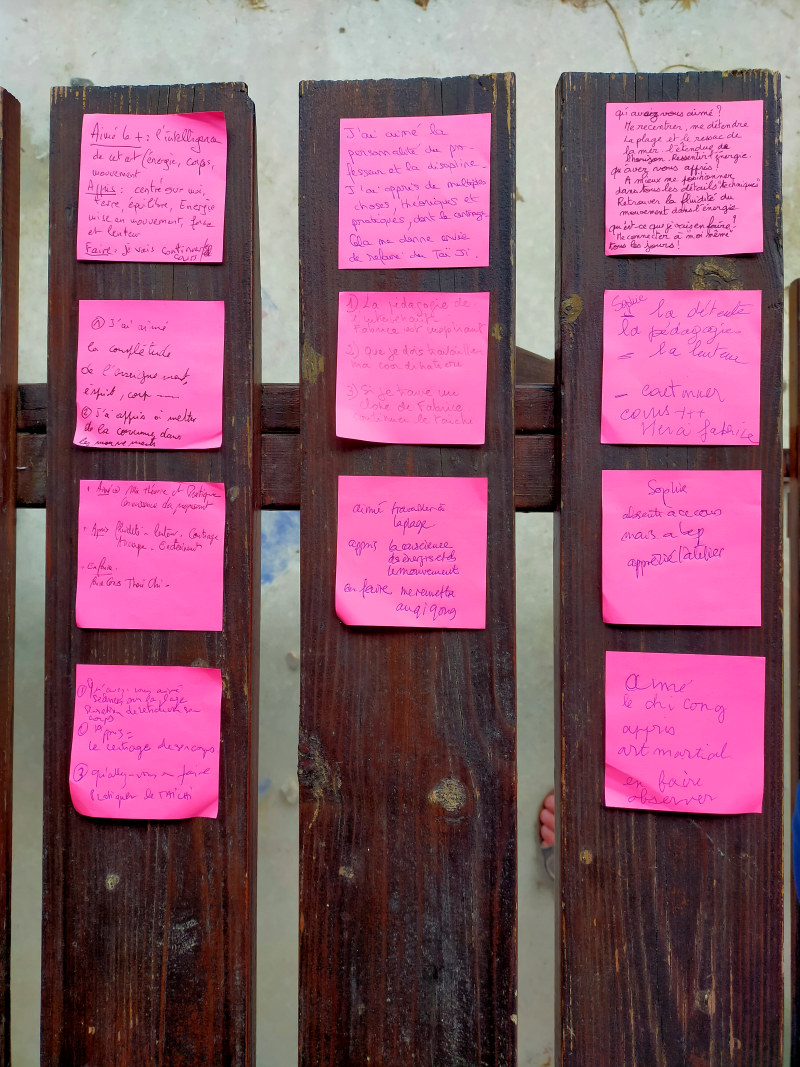 Aimé le + : l'intelligence
de cet art (énergie, corps,
mouvement
Appris : centré sur moi,
Terre, équilibre, Energie
mise en mouvement, force
et lenteur
Faire : je vais continuer les
cours
① J'ai aimé
la complétude
de l'enseignement,
esprit, corp
② J'ai appris à mettre
de la conscience dans
les mouvements
Aimé ma théorie et Pratique
du mouvement
Appris Fluidité - lenteur. Centrage
Ancrage - Enracinement
- En faire -
Des Cours Thaï Chi -
① Qu'avez-vous aimé
séances sur la plage
son
corps
② appris =
le centrage de son corps
③ qu'allez-vous en faire
Pratiquer le TAÏ CHI
J'ai aimé la
personnalité du pro-
fesseur et la discipline.
J'ai appris de multiples
choses, théoriques et
pratiques, dont le centrage.
Cela me donne envie
de refaire du Taï Ji.
1) La pédagogie de
l'intervenant
Fabrice est inspirant
2) Que je dois travailler
ma coordination
3) Si je trouve un
clone de Fabrice
continuer le Taichi
aimé travailler à
la plage
appris la conscience
des énergies et des
le mouvement
en faire me remettre
au qi gong
qu'avez vous aimé?
Me recentrer, me détendre
La plage et le ressac de
la mer. l'étendue de
l'horizon. Ressentir l'énergie.
qu'avez vous appris?
A mieux me positionner
dans tous les détails "techniques"
Retrouver la fluidité du
mouvement dans l'énergie
qu'est-ce que je vais en faire?
Me connecter à moi même
tous les jours!
Sophie
= la détente
la pédagogie
= la lenteur
- continuer
cours +++
Merci fabrice
Sophie
absente à ce cours
mais a bcp
apprécié l'atelier
aimé
le chi cong
appris
art martial
en faire
observer